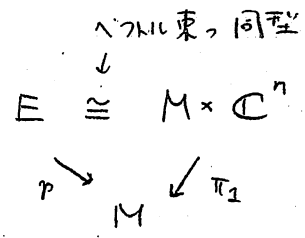 ベクトル束の同型
↓
E ≅ M × ℂⁿ
p ↘ ↙ π₁
M